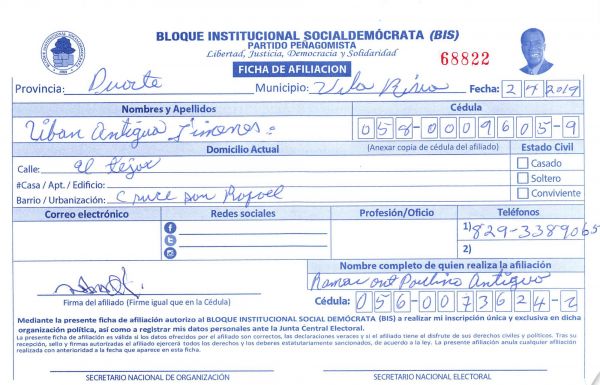 BLOQUE INSTITUCIONAL SOCIALDEMÓCRATA (BIS)
PARTIDO PEÑAGOMISTA
Libertad, Justicia, Democracia y Solidaridad
68822
FICHA DE AFILIACION
Provincia: Duarte Municipio: Villa Riva Fecha: 2 4 2019
Nombres y Apellidos Cédula
Uban Antigua Jimenes 058-0009605-9
Domicilio Actual (Anexar copia de cédula del afiliado) Estado Civil
Calle: El tejar Casado
#Casa / Apt. / Edificio: Soltero
Barrio / Urbanización: Cruce son Rafael Conviviente
Correo electrónico Redes sociales Profesión/Oficio Teléfonos
1) 829-3389065
2)
Nombre completo de quien realiza la afiliación
Ramon Paulino Antigua
Firma del afiliado (Firme igual que en la Cédula) Cédula: 056-0073624-2
Mediante la presente ficha de afiliación autorizo al BLOQUE INSTITUCIONAL SOCIAL DEMÓCRATA (BIS) a realizar mi inscripción única y exclusiva en dicha
organización política, así como a registrar mis datos personales ante la Junta Central Electoral.
La presente ficha de afiliación es válida si los datos ofrecidos por el afiliado son correctos, las declaraciones veraces y si el afiliado tiene el disfrute de sus derechos civiles y políticos. Tras su
recepción, sello y firmas autorizadas el afiliado ejercerá todos los derechos y los deberes estatutariamente sancionados, de acuerdo a la ley. La presente afiliación anula cualquier afiliación
realizada con anterioridad a la fecha que aparece en esta ficha.
SECRETARIO NACIONAL DE ORGANIZACIÓN SECRETARIO NACIONAL ELECTORAL